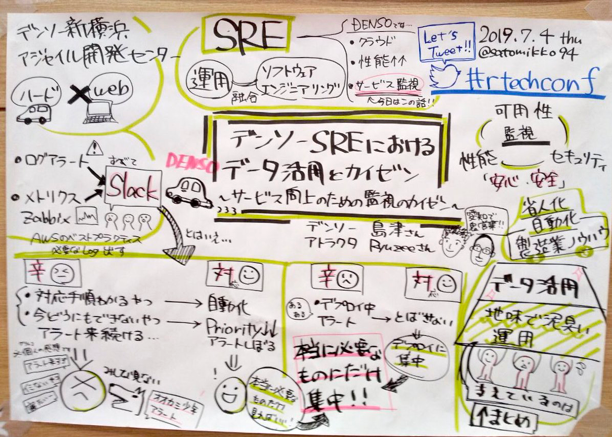 デンソー新横浜
アジャイル開発センター
ハード
×
web
SRE
運用
融合
ソフトウェア
エンジニアリング
DENSOでは…
・クラウド
・性能↑↑
・サービス監視
今日はこの話!!
Let's
Tweet!!
2019.7.4 thu
@satomikko94
#rtechconf
デンソーSREにおける
データ活用とカイゼン
～サービス向上のための監視のカイゼン～
DENSO
デンソー 島津さん
アトラクタ Ryuzeeさん
可用性
監視
性能
セキュリティ
"安心・安全"
・ログアラート
すべて
Slack
・メトリクス
Zabbix
AWSのベストプラクティス
必要なLog出す
とはいえ…
辛
対
・対応手順わかるやつ
→
自動化
・今どうにもできないやつ
→
Priority↓↓
アラート来続ける…
アラートしぼる
みんな見ない
オオカミ少年
アラート
本当に必要な
ものだけ
辛
対
あるある
・デプロイ中
アラート
→とばせない
デプロイに
集中
本当に必要な
ものにだけ
集中!!
省人化
自動化
製造業ノウハウ
データ活用
地味で泥臭い
運用
支えているのは
↑まとめ